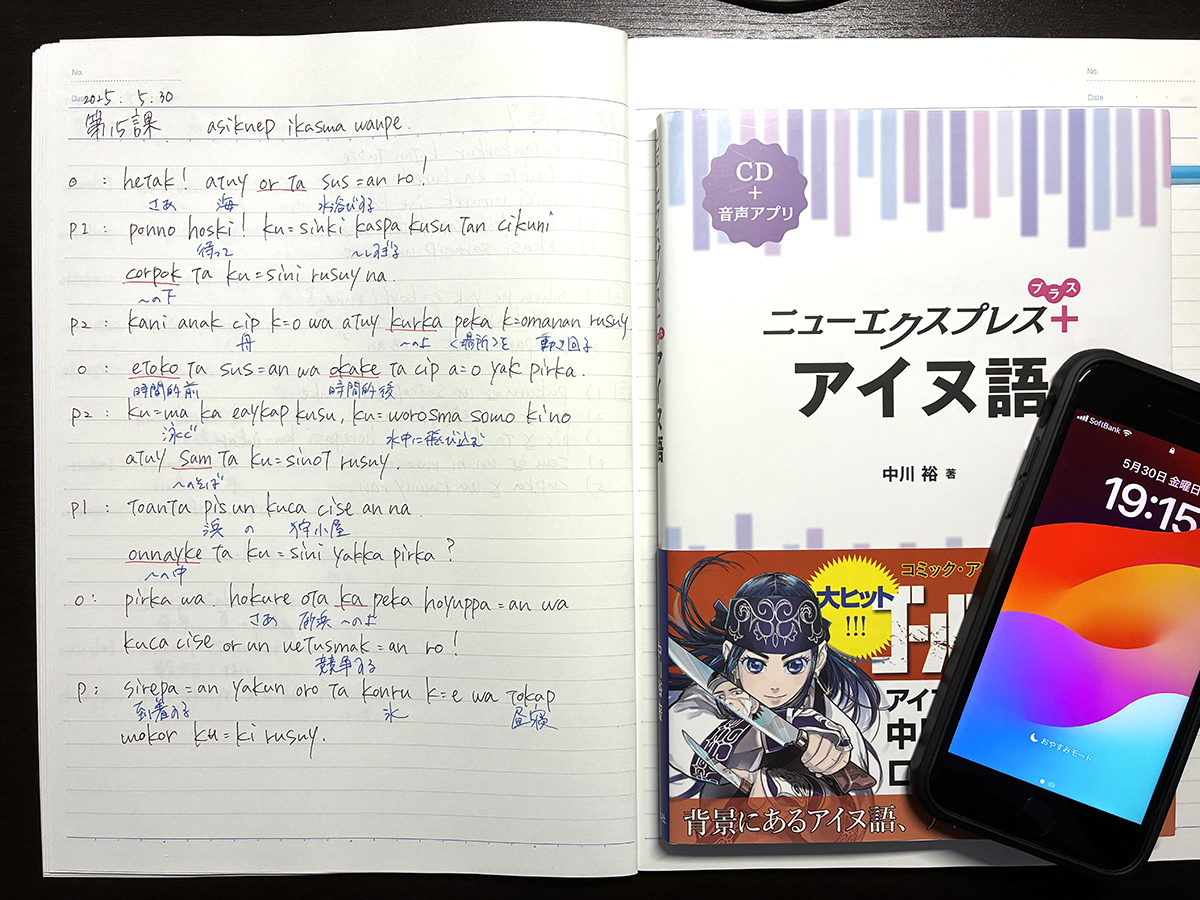 No.
Date 2025. 5.30
第15課 asiknep ikasma wanpe.
o : hetak! atuy or ta sus=an ro!
さあ 海 水浴びする
p1 : ponno hoski! ku=sinki kaspa kusu tan cikuni
待って ～しすぎる
corpok ta ku=sini rusuy na.
～の下
p2 : kani anak cip k=o wa atuy kurka peka k=omanan rusuy
舟 ～の上 <場所>を 動き回る
o : etoko ta sus=an wa okake ta cip a=o yak pirka.
時間的前 時間的後
p2 : ku=ma ka eaykap kusu, ku=worosma somo ki no
泳ぐ 水中に飛び込む
atuy sam ta ku=sinot rusuy.
～のそば
p1 : toanta pis un kuca cise an na.
浜 の 狩小屋
onnayke ta ku=sini yakka pirka?
～の中
o : pirka wa. hokure ota ka peka hoyuppa=an wa
さあ 砂浜 ～の上
kuca cise or un uetusmak=an ro!
競争する
p : sirepa=an yakun oro ta konru k=e wa tokap
到着する 氷 昼寝
mokor ku=ki rusuy.
No.
Date
CD
+
音声アプリ
プラス
ニューエクスプレス+
アイヌ語
中川 裕 著
コミック・ア
大ヒット
!!!
ゴール
アイヌ
中川
背景にあるアイヌ語、
SoftBank
5月30日 金曜日
19:15
おやすみモード